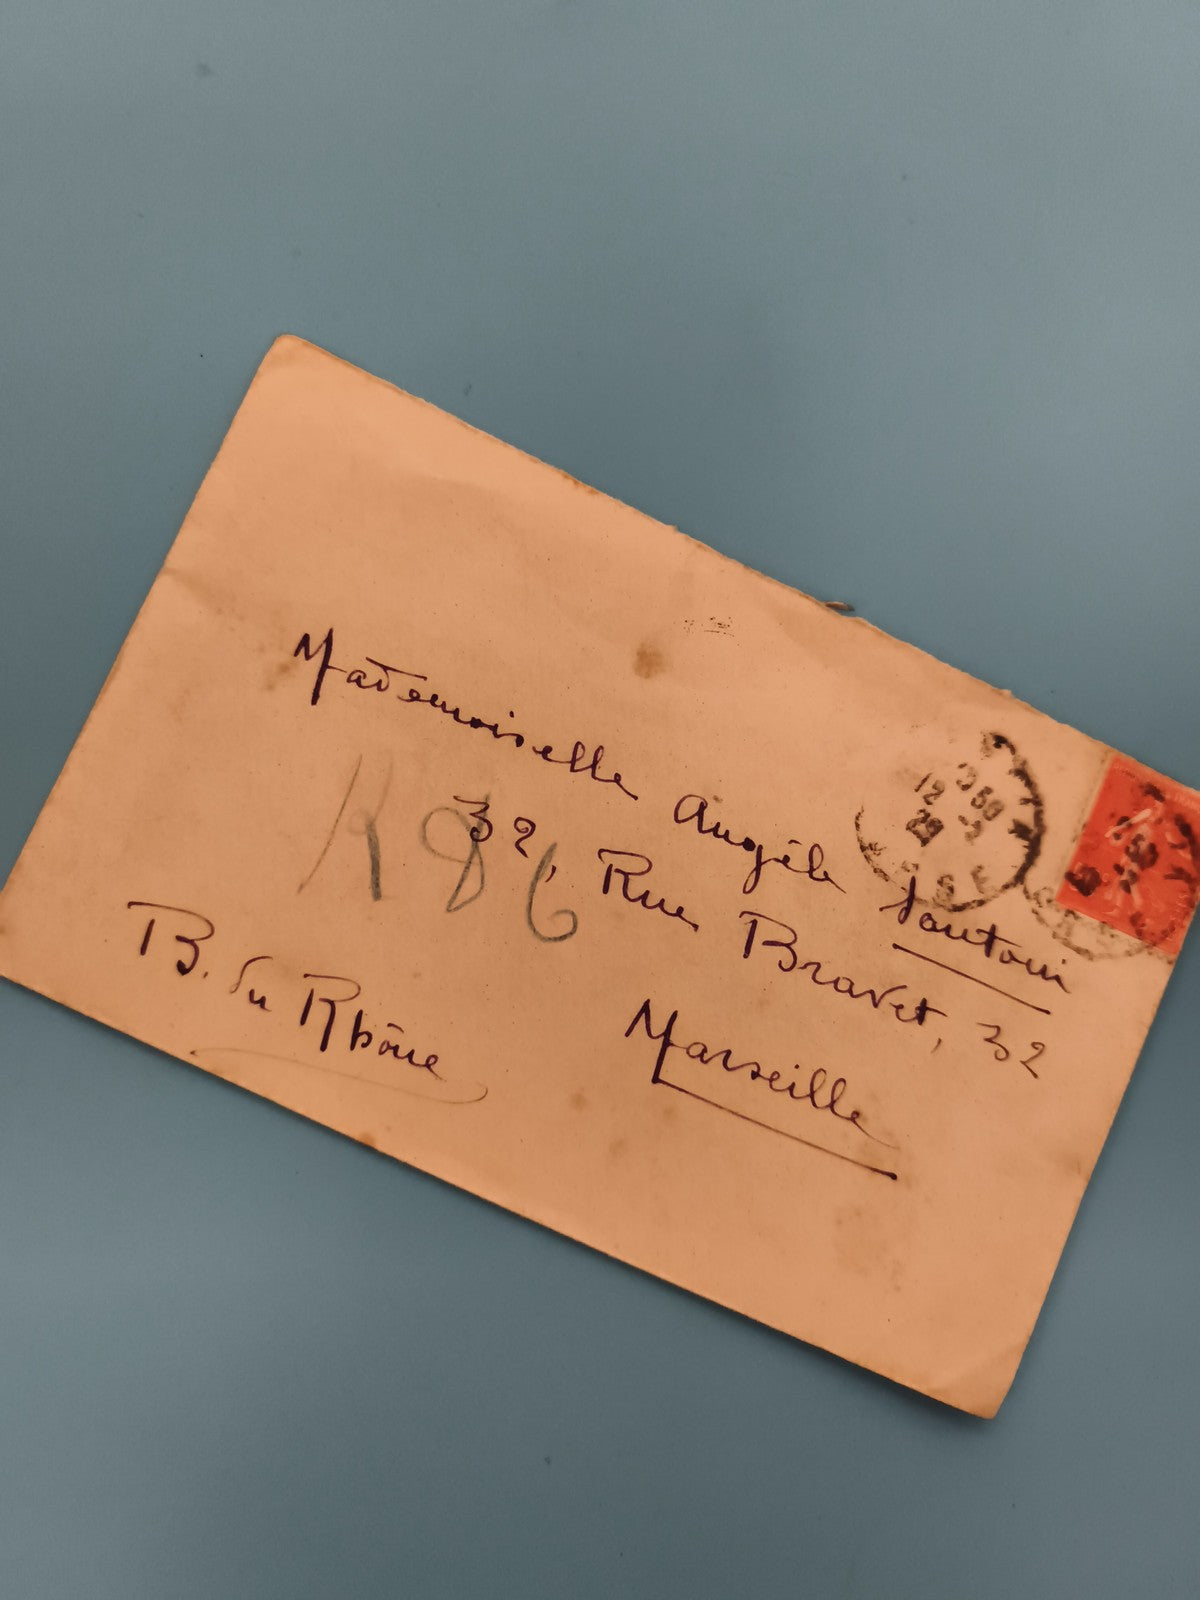 Mademoiselle Angèle Santoni
32, Rue Bravet, 32
Marseille
B. du Rhône
K 86
12